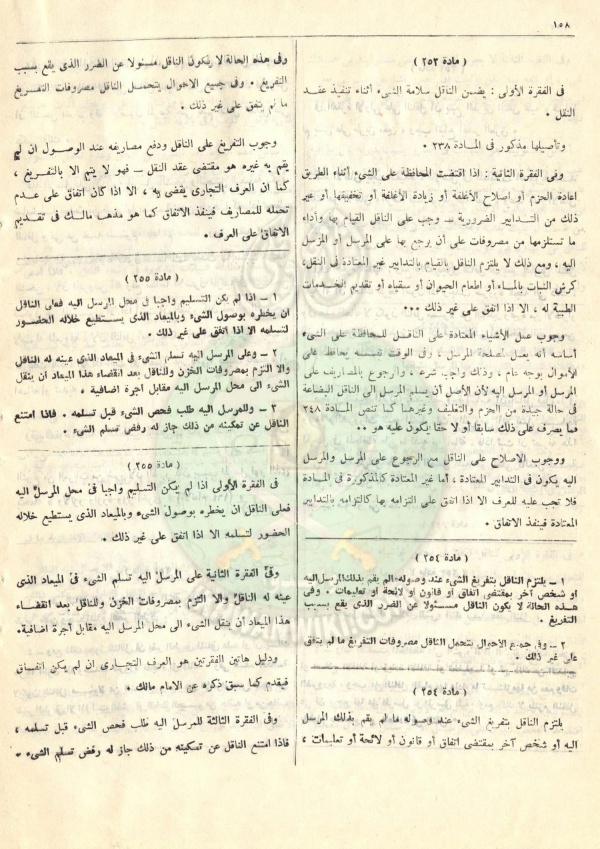 ١٥٨
( مادة ٢٥٣ )
فى الفقرة الأولى : يضمن الناقل سلامة الشىء أثناء تنفيذ عقد
النقل .
وتأصيلها مذكور فى المادة ٢٣٨ .
وفى الفقرة الثانية : اذا اقتضت المحافظة على الشىء أثناء الطريق
اعادة الحزم أو اصلاح الأغلفة أو زيادة الأغلفة أو تخفيفها أو غير
ذلك من التدابير الضرورية ــ وجب على الناقل القيام بها وأداء
ما تستلزمها من مصروفات على أن يرجع بها على المرسل أو المرسل
اليه ، ومع ذلك لا يلتزم الناقل بالقيام بالتدابير غير المعتادة فى النقل،
كرش النبات بالماء أو اطعام الحيوان أو سقياه أو تقديم الخدمات
الطبية له ، الا اذا اتفق على غير ذلك ..
وجوب عمل الأشياء المعتادة على الناقل للمحافظة على الشىء
أساسه أنه يعمل لمصلحة المرسل ، وفى الوقت نفسه يحافظ على
الأموال بوجه عام ، وذلك واجب شرعا ، والرجوع بالمصاريف على
المرسل أو المرسل اليه لأن الأصل أن يسلم المرسل الى الناقل البضاعة
فى حالة جيدة من الحزم والتغليف وغيرهما كما تنص المادة ٢٤٨
فما يصرف على ذلك سابقا أو لاحقا يكون عليه هو ..
ووجوب الاصلاح على الناقل مع الرجوع على المرسل والمرسل
اليه يكون فى التدابير المعتادة ، أما غير المعتادة كالمذكورة فى المادة
فلا تجب عليه للعرف الا اذا اتفق على التزامه بها كالتزامه بالتدابير
المعتادة فينفذ الاتفاق .
( مادة ٢٥٤ )
١ ــ يلتزم الناقل بتفريغ الشىء عند وصوله ما لم يقم بذلك المرسل اليه
او شخص آخر بمقتضى اتفاق أو قانون او لائحة أو تعليمات . وفى
هذه الحالة لا يكون الناقل مسئولا عن الضرر الذى يقع بسبب
التفريغ .
٢ ــ وفى جميع الأحوال يتحمل الناقل مصروفات التفريغ ما لم يتفق
على غير ذلك .
( مادة ٢٥٤ )
يلتزم الناقل بتفريغ الشىء عند وصوله ما لم يقم بذلك المرسل
اليه أو شخص آخر بمقتضى اتفاق أو قانون أو لائحة أو تعليمات ،
وفى هذه الحالة لا يكون الناقل مسئولا عن الضرر الذى يقع بسبب
التفريغ . وفى جميع الاحوال يتحمل الناقل مصروفات التفريغ
ما لم يتفق على غير ذلك .
وجوب التفريغ على الناقل ودفع مصاريفه عند الوصول ان لم
يقم به غيره هو مقتضى عقد النقل ــ فهو لا يتم الا بالتفريغ ،
كما ان العرف التجارى يقضى به ، الا اذا كان اتفاق على عدم
تحمله للمصاريف فينفذ الاتفاق كما هو مذهب مالك فى تقديم
الاتفاق على العرف .
( مادة ٢٥٥ )
١ ــ اذا لم يكن التسليم واجبا فى محل المرسل اليه فعلى الناقل
ان يخطره بوصول الشىء وبالميعاد الذى يستطيع خلاله الحضور
لتسلمه الا اذا اتفق على غير ذلك .
٢ ــ وعلى المرسل اليه تسلم الشىء فى الميعاد الذى عينه له الناقل
والا التزم بمصروفات الخزن وللناقل بعد انقضاء هذا الميعاد أن ينقل
الشىء الى محل المرسل اليه مقابل أجرة اضافية .
٣ ــ وللمرسل اليه طلب فحص الشىء قبل تسلمه . فاذا امتنع
الناقل عن تمكينه من ذلك جاز له رفض تسلم الشىء .
( مادة ٢٥٥ )
فى الفقرة الأولى اذا لم يكن التسليم واجبا فى محل المرسل اليه
فعلى الناقل ان يخطره بوصول الشىء وبالميعاد الذى يستطيع خلاله
الحضور لتسلمه الا اذا اتفق على غير ذلك .
وفى الفقرة الثانية على المرسل اليه تسلم الشىء فى الميعاد الذى
عينه له الناقل والا التزم بمصروفات الخزن وللناقل بعد انقضاء
هذا الميعاد أن ينقل الشىء الى محل المرسل اليه مقابل أجرة اضافية.
ودليل هاتين الفقرتين هو العرف التجارى ان لم يكن اتفاق
فيقدم كما سبق ذكره عن الامام مالك .
وفى الفقرة الثالثة للمرسل اليه طلب فحص الشىء قبل تسلمه ،
فاذا امتنع الناقل عن تمكينه من ذلك جاز له رفض تسلم الشىء .